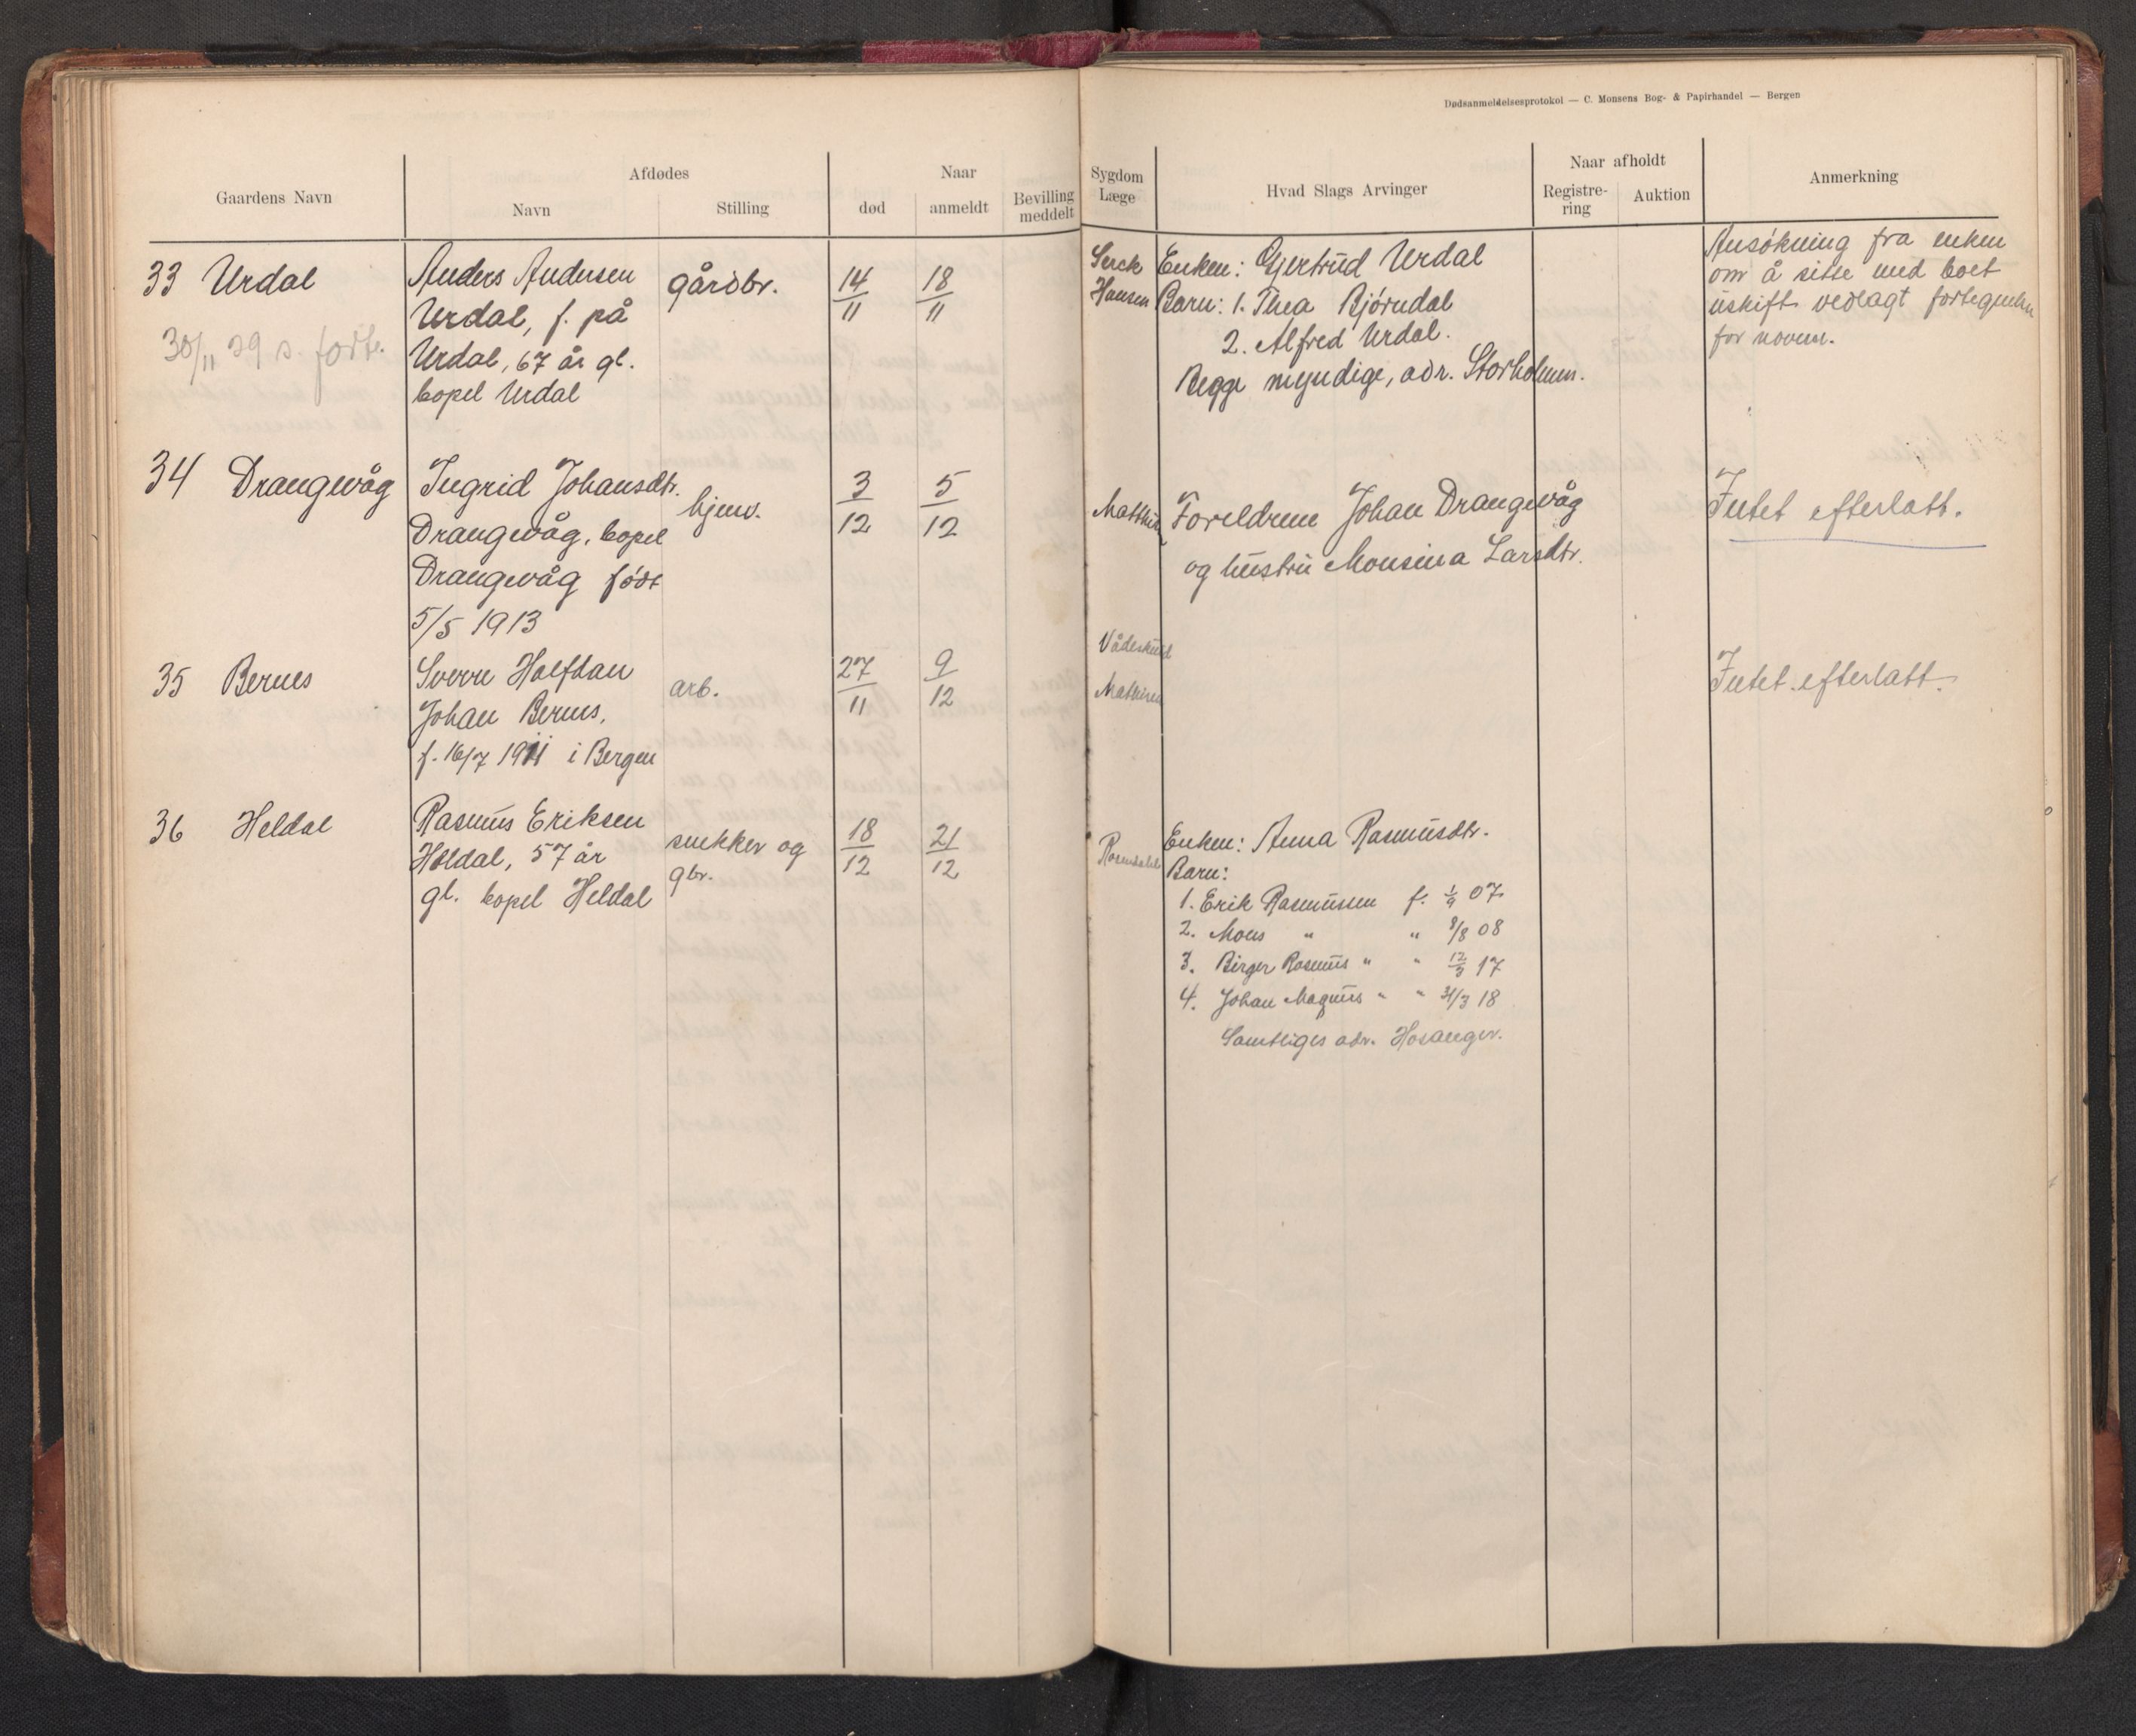 Dødsanmeldelsesprotokol — C. Monsens Bog- & Papirhandel — Bergen
Gaardens Navn
Afdødes
Navn
Stilling
Naar
død
anmeldt
Bevilling meddelt
Sygdom
Læge
Hvad Slags Arvinger
Naar afholdt
Registre-
ring
Auktion
Anmerkning
33 Urdal
30/11 29 s.
Anders Andersen
Urdal, f. på
Urdal, 67 år gl.
bopel Urdal
gårdbr.
14/11
18/11
Serck
Hansen
Enken: Gjertrud Urdal
Barn: 1. Thea Bjørndal
2. Alfred Urdal.
Begge myndige, adr. Storholmen.
Ansøkning fra enken
om å sitte med boet
uskift vedlagt
for novem.
34 Drangevåg
Ingrid Johansdtr.
Drangevåg, bopel
Drangevåg født
5/5 1913
hjemv.
3/12
5/12
Foreldrene Johan Drangevåg
og hustru Monsina Larsdtr.
Intet efterlatt.
35 Bernes
Sverre Halfdan
Johan Bernes,
f. 16/7 1911 i Bergen
arb.
27/11
9/12
Vådeskudd
Intet efterlatt.
36 Heldal
Rasmus Eriksen
Heldal, 57 år
gl. bopel Heldal
snekker og
gbr.
18/12
21/12
Rosendahl
Enken: Anna Rasmusdtr.
Barn:
1. Erik Rasmussen f. 1/9 07
2. Mons " " 8/8 08
3. Birger Rasmus " " 12/3 17
4. Johan Magnus " " 31/3 18
Samtliges adr. Hosanger.